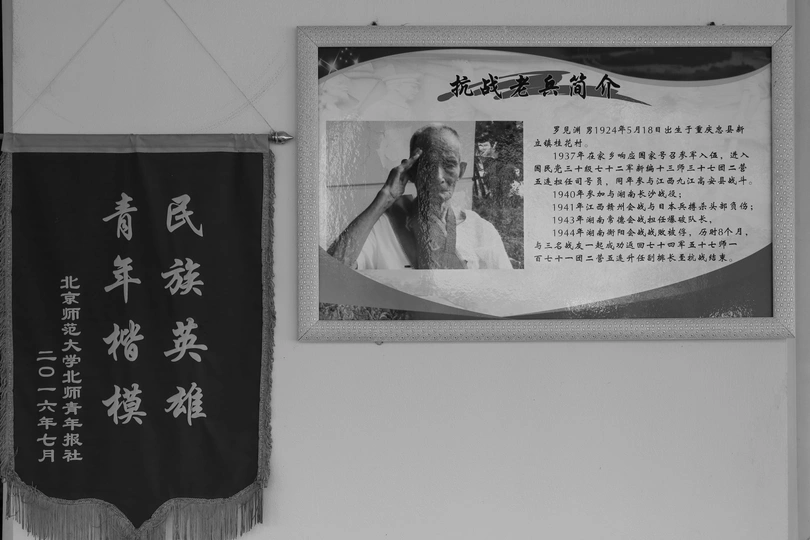 民族英雄
青年楷模
北京师范大学北师青年报社
二〇一六年七月
抗战老兵简介
罗见渊 男1924年5月18日出生于重庆忠县新
立镇桂花村。
1937年在家乡响应国家号召参军入伍，进入
国民党三十级七十二军新编十三师三十七团二营
五连担任司号员，同年参与江西九江高安县战斗。
1940年参加与湖南长沙战役；
1941年江西赣州会战与日本兵搏杀头部负伤；
1943年湖南常德会战担任爆破队长。
1944年湖南衡阳会战战败被俘，历时8个月，
与三名战友一起成功返回七十四军五十七师一
百七十一团二营五连升任副排长至抗战结束。